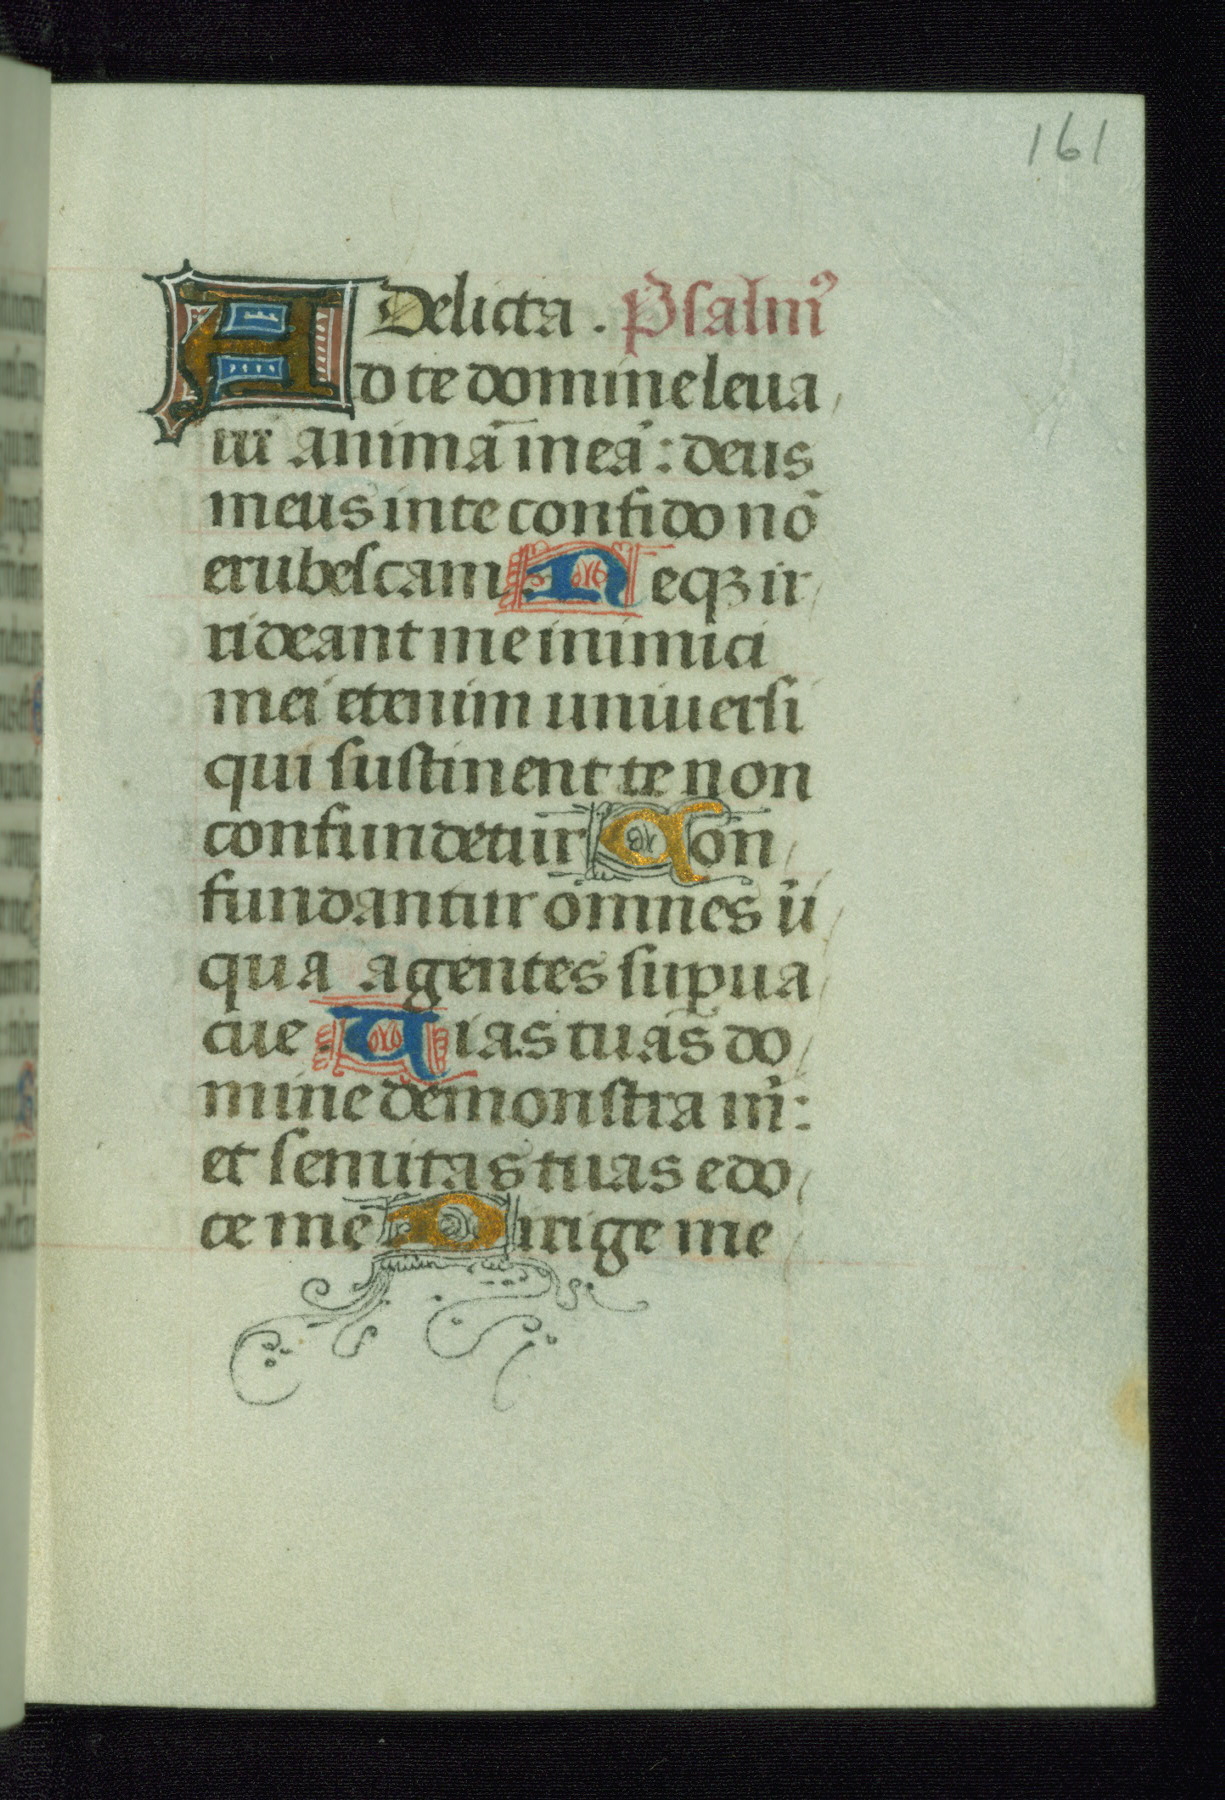 161
Delicta . Psalmꝰ
Ad te domine leua
ui animā meā : deus
meus in te confido nō
erubescam Neqꝫ ir
rideant me inimici
mei etenim uniuersi
qui sustinent te non
confundētur Con
fundantur omnes ini
qua agentes suꝑua
cue Uias tuas do
mine demonstra m̄ :
et semitas tuas edo
ce me Dirige me